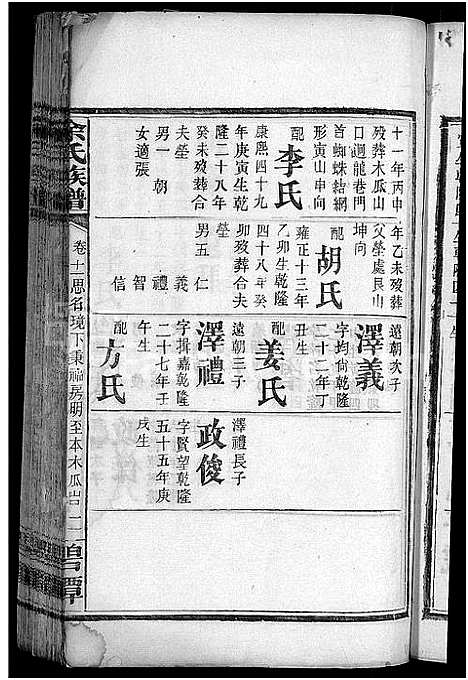 十一年丙申
歿葬木瓜山
口迴龍卷門
首蜘蛛結網
形寅山申向
配李氏
康熙四十九
年庚寅生乾
隆二十八年
癸未歿葬合
夫塋
男一 朝
女適張
年乙未歿葬
父塋處艮山
坤向
配胡氏
雍正十三年
乙卯生乾隆
四十八年癸
卯歿葬合夫
塋
男五 仁
義
禮
智
信
澤義
遠朝次子
字均尙乾隆
二十二年丁
丑生
配姜氏
澤禮
遠朝三子
字揖嘉乾隆
二十七年壬
午生
配方氏
政俊
澤禮長子
字賢望乾隆
五十五年庚
戌生
余氏族譜
卷十二思名境下東神房明至本木瓜岩 一
碧潭